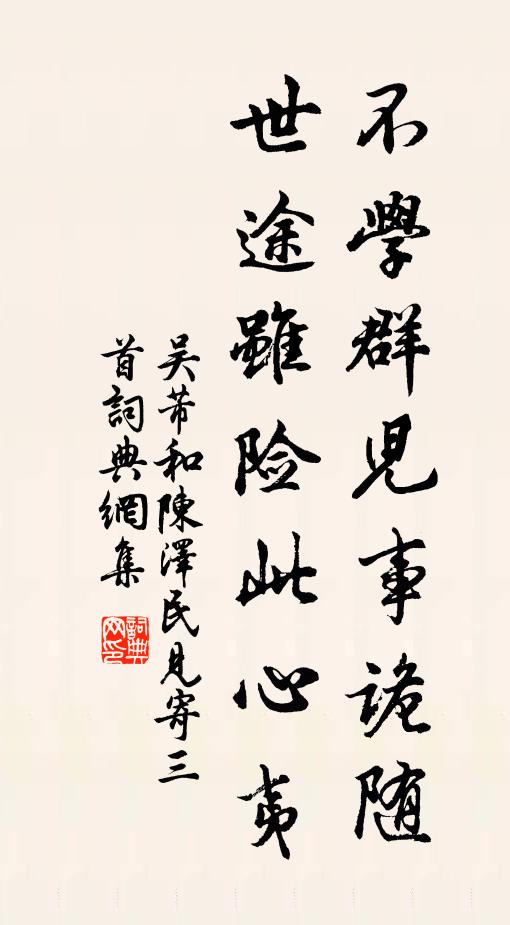 不學群児事詭随
世途雖险此心夷
吴芾和陳澤民見寄三
首詞典網集
詞典
网印